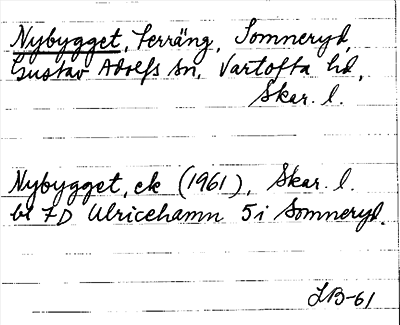 Nybygget, terräng, Somneryd,
Gustav Adolfs sn, Vartofta hd,
Skar. l.
Nybygget, ek (1961), Skar. l.
bl 7D Ulricehamn 5i Somneryd.
LB-61